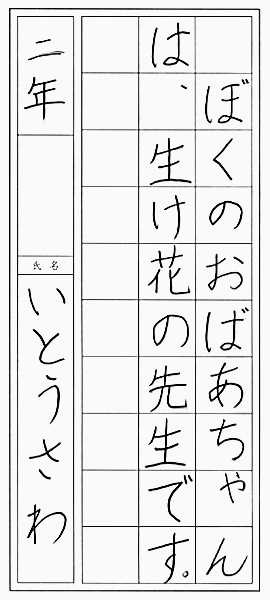 ぼくのおばあちゃん
は、生け花の先生です。
二年
氏名
いとうさわ